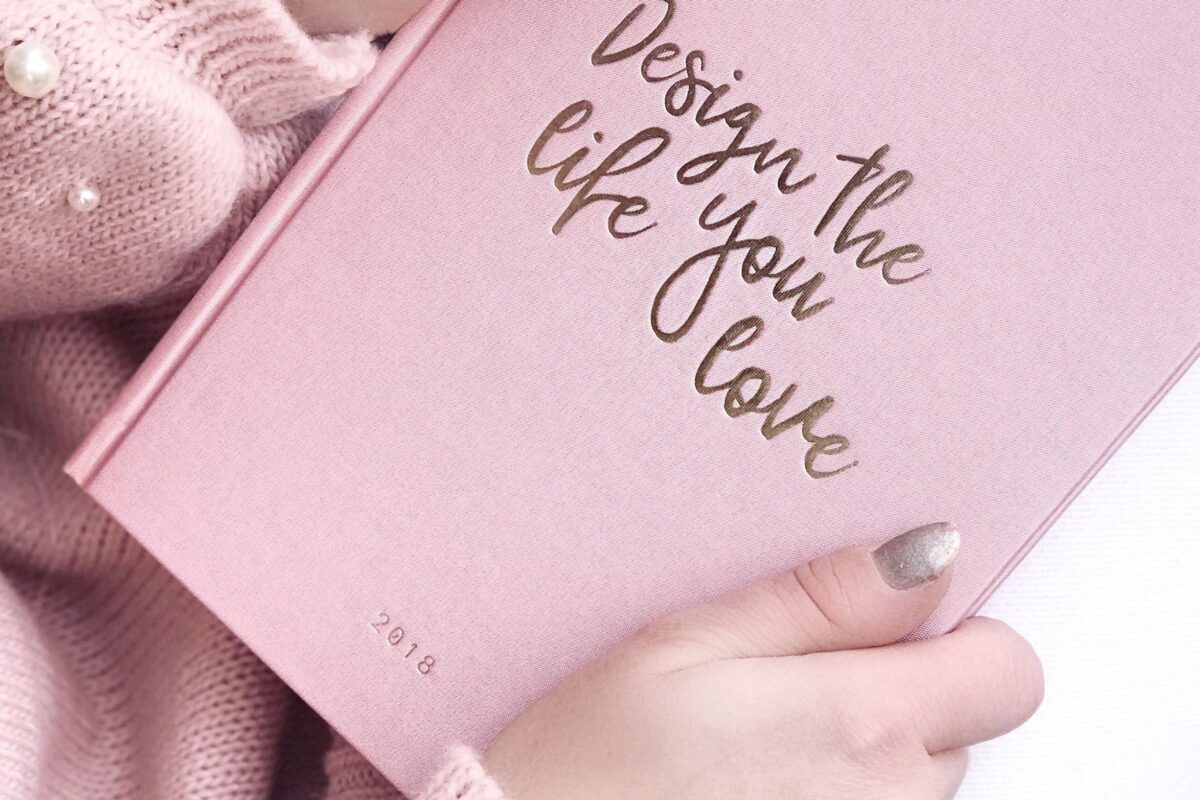 Design the
life you
love
2018